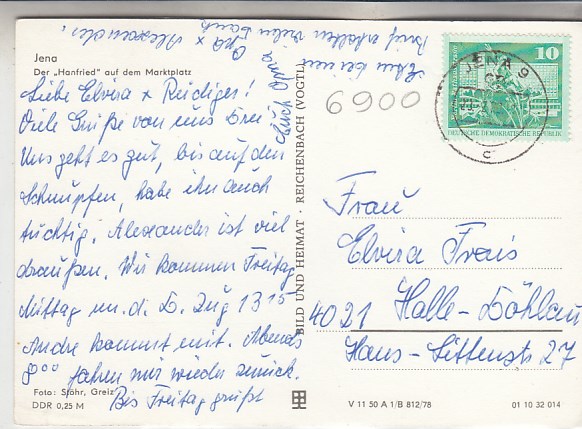 Jena
Der „Hanfried" auf dem Marktplatz
Liebe Elvira + Rüdiger!
Viele Grüße von uns Drei
Uns geht es gut, bis auf den
Schnupfen, habe ihn auch
tüchtig. Alexander ist viel
draußen. Wir kommen Freitag
Mittag m. d. D. Zug 13 15
Andre kommt mit. Abends
8 00 fahren wir wieder zurück.
Bis Freitag grüßt
Euch
+ Alexander,
Brief erhalten vielen Dank
Foto: Stöhr, Greiz
DDR 0,25 M
BILD UND HEIMAT · REICHENBACH (VOGTL)
6900
10
JENA 9
DEUTSCHE DEMOKRATISCHE REPUBLIK
c
Frau
Elvira Frais
4021 Halle-Döhlau
Hans-Sittenstr 27
V 11 50 A 1/B 812/78
01 10 32 014